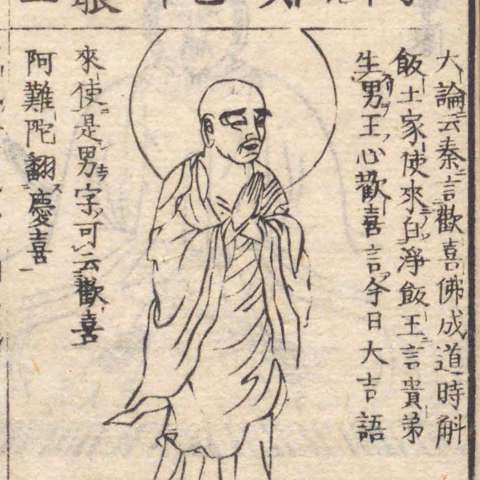 大論云秦言歡喜佛成道時斛
飯土家使來白淨飯王言貴弟
生男王心歡喜言今日大吉語
來使是男字可云歡喜
阿難陀翻慶喜